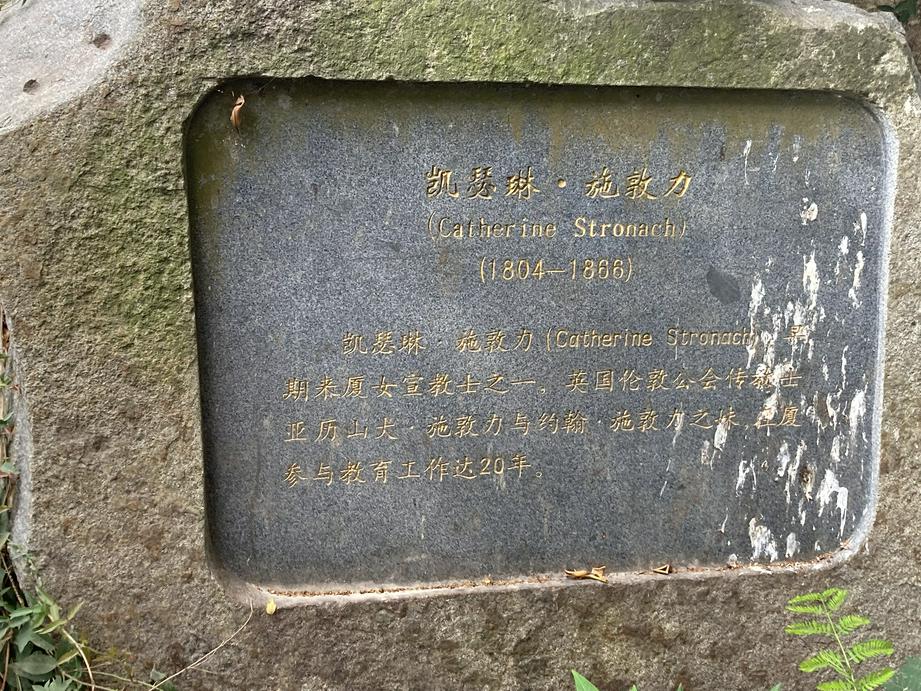 凯瑟琳·施敦力
(Catherine Stronach)
(1804—1866)
凯瑟琳·施敦力(Catherine Stronach)，早
期来厦女宣教士之一。英国伦敦公会传教士
亚历山大·施敦力与约翰·施敦力之妹,在厦
参与教育工作达20年。